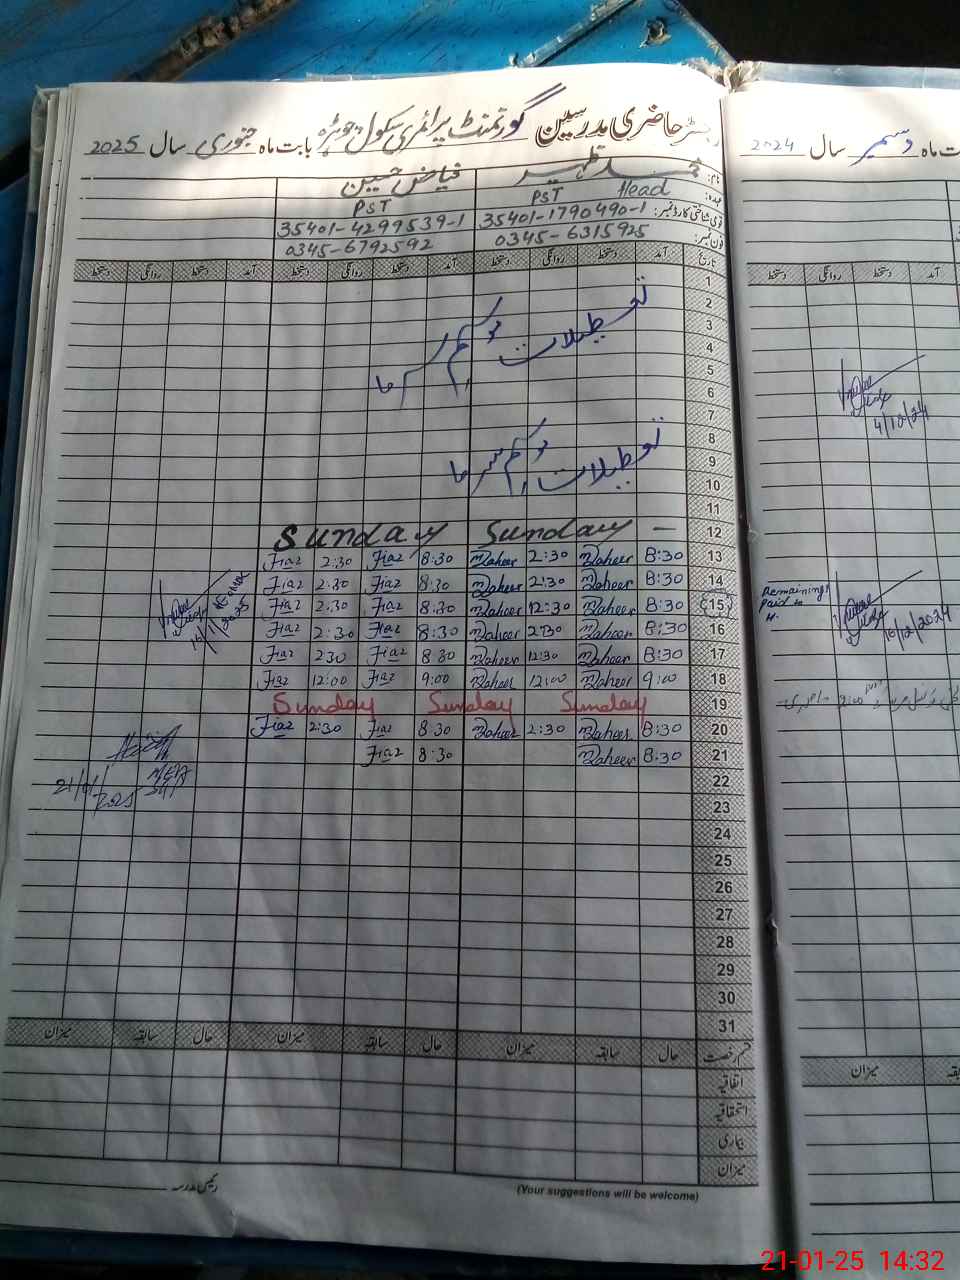 رجسٹر حاضری مدرسین گورنمنٹ پرائمری سکول جوہڑہ بابت ماہ جنوری سال 2025
نام: محمد ظہیر فیاض حسین
عہدہ: Head PST PST
قومی شناختی کارڈ نمبر: 35401-1790490-1 35401-4299539-1
فون نمبر: 0345-6315925 0345-6792592
تاریخ آمد دستخط روانگی دستخط آمد دستخط روانگی دستخط آمد دستخط روانگی دستخط
1
2
3
4
تعطیلات موسم سرما
5
6
7
8
9
تعطیلات موسم سرما
10
11
12 Sunday Sunday –
13 8:30 Zaheer 2:30 Zaheer 8:30 Fiaz 2:30 Fiaz
14 8:30 Zaheer 2:30 Zaheer 8:30 Fiaz 2:30 Fiaz
15 8:30 Zaheer 12:30 Zaheer 8:30 Fiaz 2:30 Fiaz
16 8:30 Zaheer 2:30 Zaheer 8:30 Fiaz 2:30 Fiaz
17 8:30 Zaheer 12:30 Zaheer 8:30 Fiaz 2:30 Fiaz
18 9:00 Zaheer 12:00 Zaheer 9:00 Fiaz 12:00 Fiaz
19 Sunday Sunday Sunday
20 8:30 Zaheer 2:30 Zaheer 8:30 Fiaz 2:30 Fiaz
21 8:30 Zaheer 8:30 Fiaz
21/01/2025
22
23
24
25
26
27
28
29
30
31
قسم رخصت حال سابقہ میزان حال سابقہ میزان حال سابقہ میزان
اتفاقیہ
استحقاقیہ
بیماری
میزان
رئیس مدرسہ
(Your suggestions will be welcome)
ت ماہ دسمبر سال 2024
آمد دستخط روانگی دستخط
4/12/24
Remaining
Paid
16/12/2024
سابقہ میزان
21-01-25 14:32